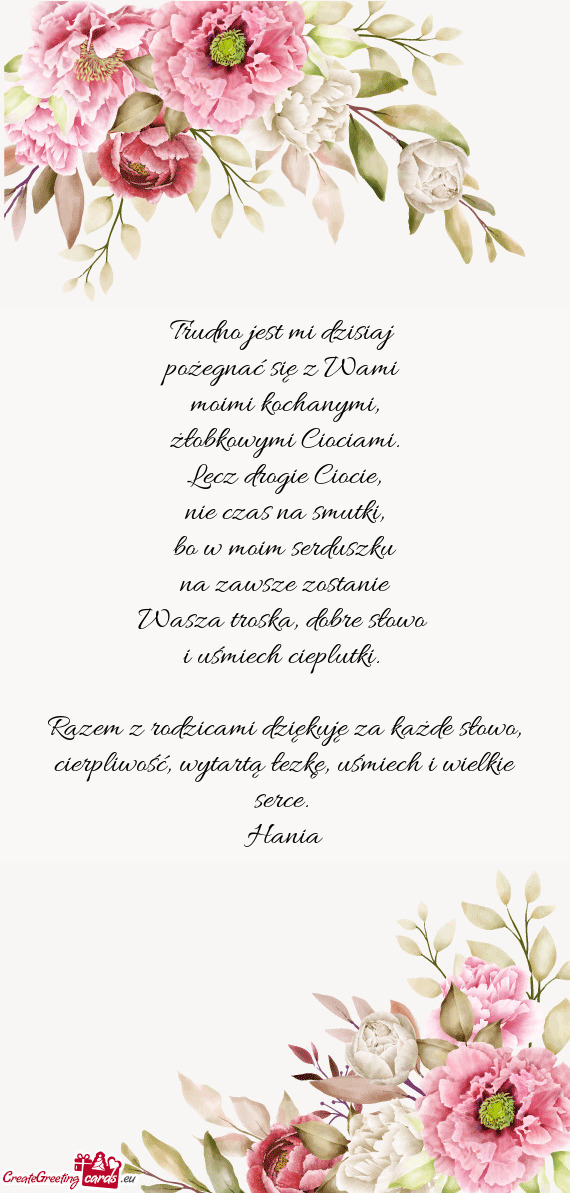 Trudno jest mi dzisiaj
pożegnać się z Wami
moimi kochanymi,
żłobkowymi Ciociami.
Lecz drogie Ciocie,
nie czas na smutki,
bo w moim serduszku
na zawsze zostanie
Wasza troska, dobre słowo
i uśmiech cieplutki.
Razem z rodzicami dziękuję za każde słowo,
cierpliwość, wytartą łezkę, uśmiech i wielkie
serce.
Hania
CreateGreeting cards .eu